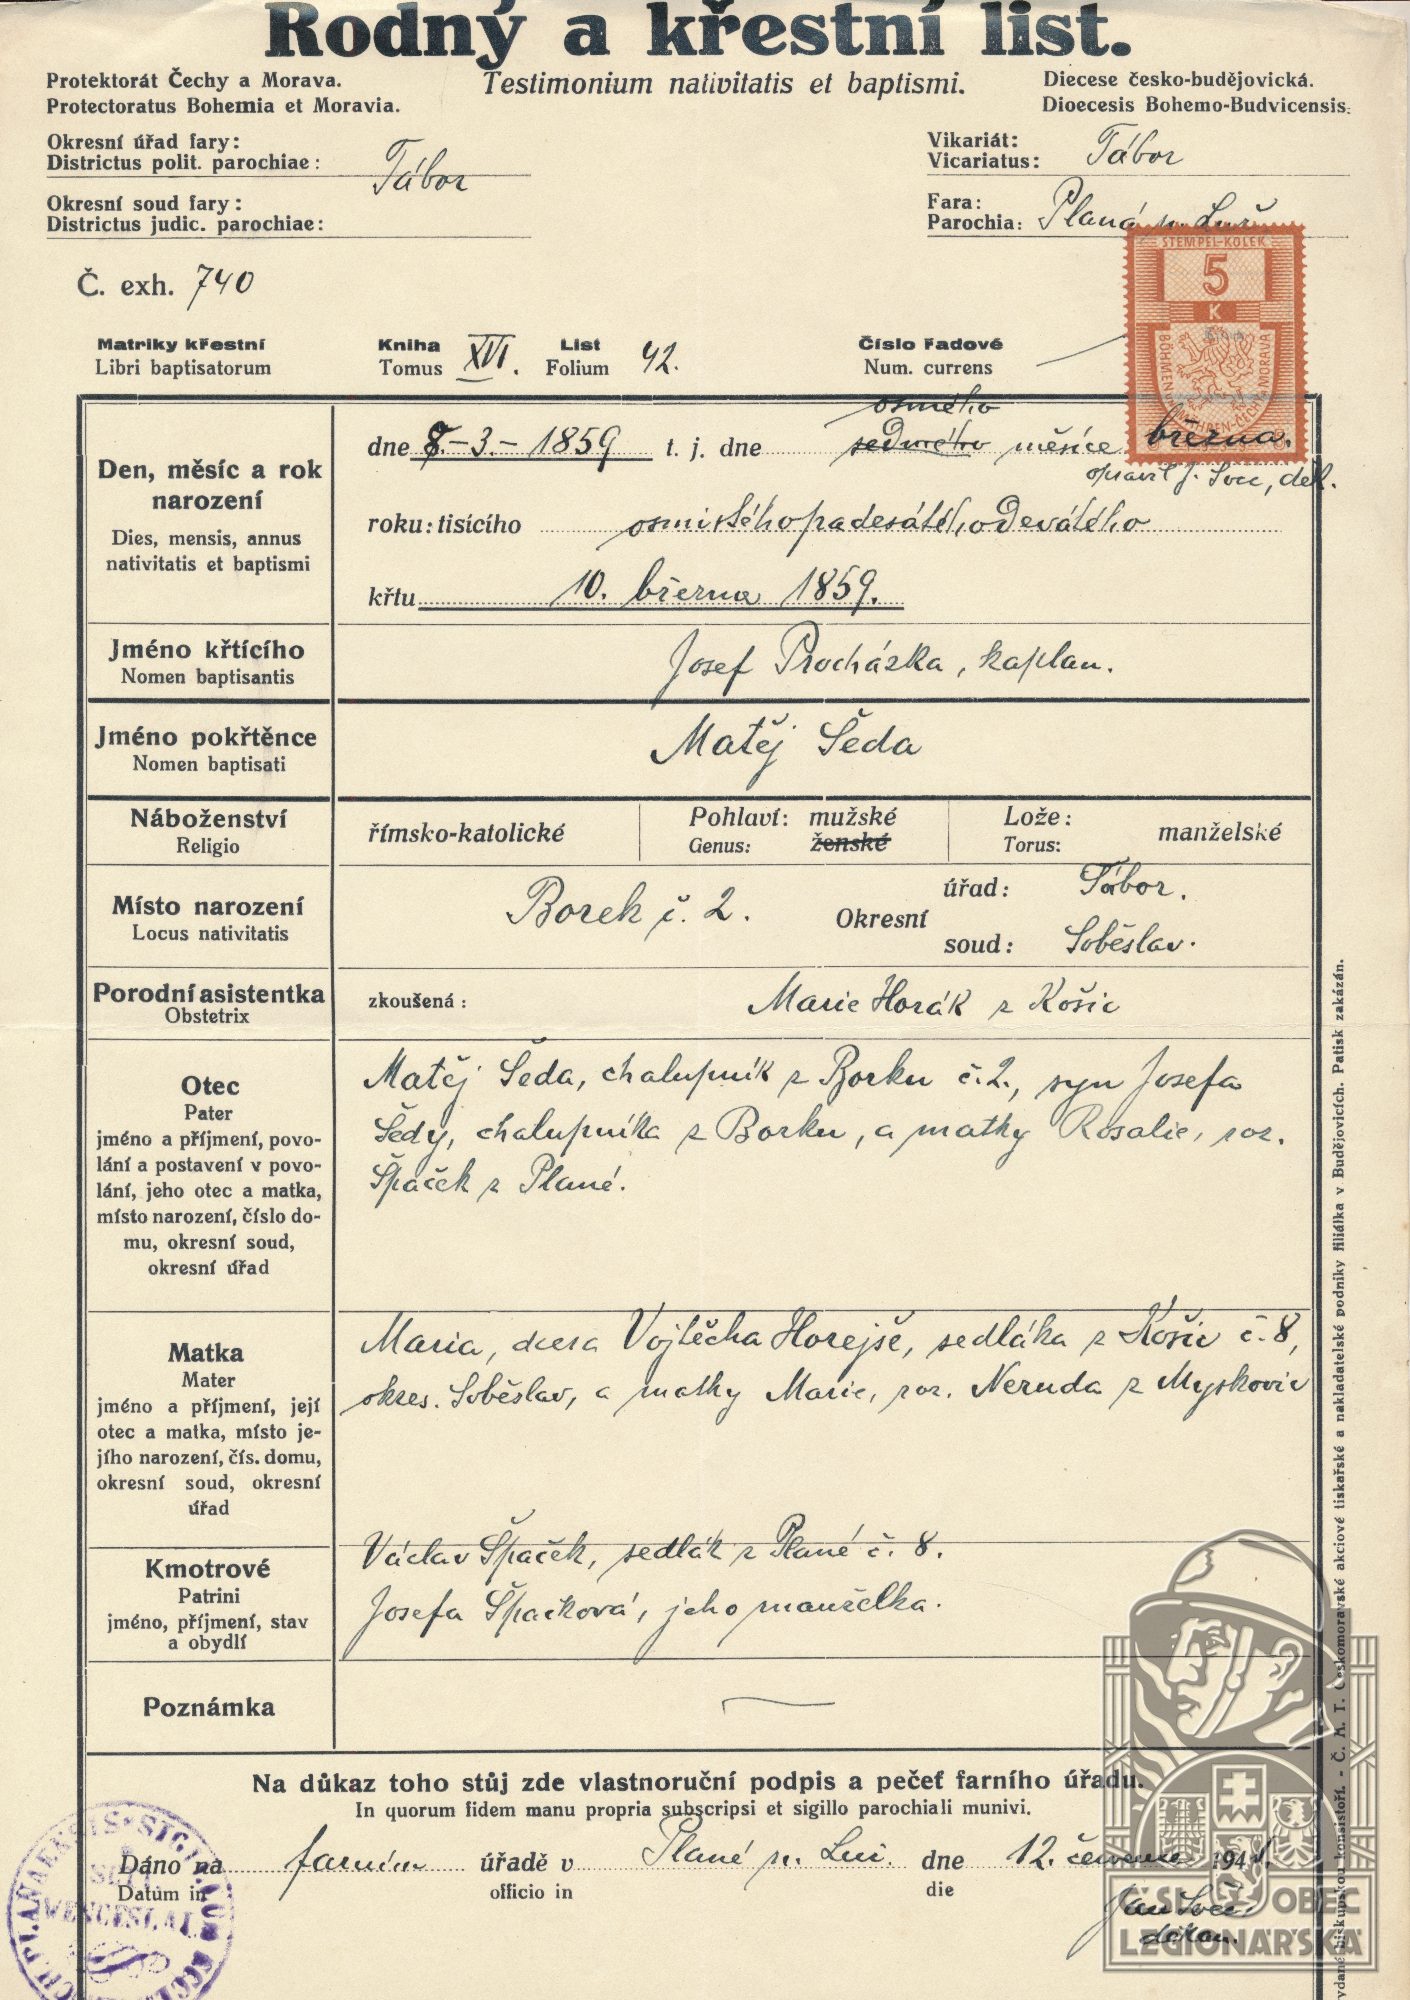 Rodný a křestní list.
Protektorát Čechy a Morava.
Protectoratus Bohemia et Moravia.
Testimonium nativitatis et baptismi.
Diecese česko-budějovická.
Dioecesis Bohemo-Budvicensis.
Okresní úřad fary:
Districtus polit. parochiae:
Tábor
Okresní soud fary:
Districtus judic. parochiae:
Vikariát:
Vicariatus: Tábor
Fara:
Parochia: Planá n. Luž.
Č. exh. 740
STEMPEL-KOLEK
5
K
BÖHMEN U. MÄHREN-ČECHY A MORAVA
Matriky křestní
Libri baptisatorum
Kniha
Tomus XVI.
List
Folium 42.
Číslo řadové
Num. currens
Den, měsíc a rok
narození
Dies, mensis, annus
nativitatis et baptismi
osmého
dne 8.-3.-1859 t. j. dne sedmého měsíce března.
opravil J. , děk.
roku: tisícího osmistéhopadesátéhodevátého
křtu 10. března 1859.
Jméno křtícího
Nomen baptisantis
Josef Procházka, kaplan.
Jméno pokřtěnce
Nomen baptisati
Matěj Šeda
Náboženství
Religio
římsko-katolické
Pohlaví: mužské
Genus: ženské
Lože:
Torus:
manželské
Místo narození
Locus nativitatis
Borek č. 2.
Okresní
úřad: Tábor.
soud: Soběslav.
Porodní asistentka
Obstetrix
zkoušená: Marie Horák z Košic
Otec
Pater
jméno a příjmení, povo-
lání a postavení v povo-
lání, jeho otec a matka,
místo narození, číslo do-
mu, okresní soud,
okresní úřad
Matěj Šeda, chalupník z Borku č. 2., syn Josefa
Šedy, chalupníka z Borku, a matky Rosalie, roz.
Špaček z Plané.
Matka
Mater
jméno a příjmení, její
otec a matka, místo je-
jího narození, čís. domu,
okresní soud, okresní
úřad
Maria, dcera Vojtěcha Horejše, sedláka z Košic č. 8,
okres. Soběslav, a matky Marie, roz. Neruda z Myskovic
Kmotrové
Patrini
jméno, příjmení, stav
a obydlí
Václav Špaček, sedlák z Plané č. 8.
Josefa Špačková, jeho manželka.
Poznámka
Na důkaz toho stůj zde vlastnoruční podpis a pečeť farního úřadu.
In quorum fidem manu propria subscripsi et sigillo parochiali munivi.
Dáno na farním úřadě v Plané n. Luž. dne 12. července 1941.
Datum in officio in die
Jan
děkan.
SCTI
VENCESLAI
ČS. OBEC
LEGIONÁŘSKÁ
Vydané biskupskou konsistoří. - Č. A. T. Českomoravské akciové tiskařské a nakladatelské podniky filiálka v Budějovicích. Patisk zakázán.